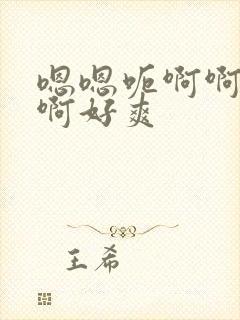 嗯嗯呃啊啊
啊好爽
王希